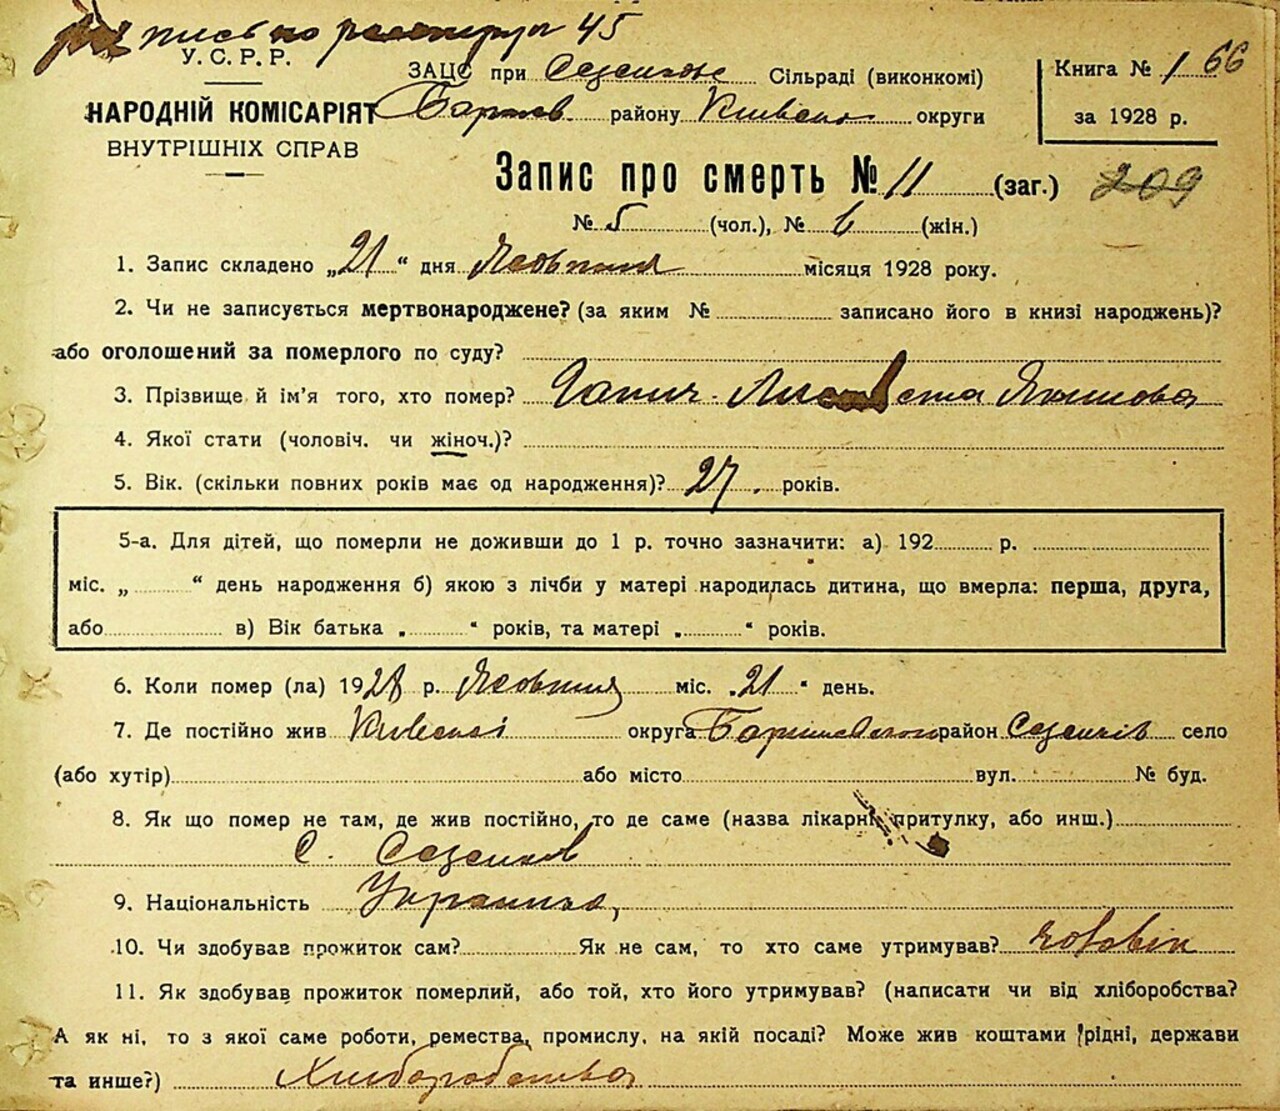 по реєстру 45
У.С.Р.Р.
НАРОДНІЙ КОМІСАРІЯТ
ВНУТРІШНІХ СПРАВ
ЗАЦС при Сезенков Сільраді (виконкомі)
району Київської округи
Книга № 1 66
за 1928 р.
Запис про смерть № 11 (заг.) 209
№ 5 (чол.), № 6 (жін.)
1. Запис складено „21“ дня Жовтня місяця 1928 року.
2. Чи не записується мертвонароджене? (за яким № записано його в книзі народжень)?
або оголошений за померлого по суду?
3. Прізвище й ім'я того, хто помер?
4. Якої стати (чоловіч. чи жіноч.)?
5. Вік. (скільки повних років має од народження)? 27 років.
5-а. Для дітей, що померли не доживши до 1 р. точно зазначити: а) 192 р.
міс. „ “ день народження б) якою з лічби у матері народилась дитина, що вмерла: перша, друга,
або в) Вік батька „ “ років, та матері „ “ років.
6. Коли помер (ла) 1928 р. Жовтня міс. „21“ день.
7. Де постійно жив Київської округа Баришевського район Сезенків село
(або хутір) або місто вул. № буд.
8. Як що помер не там, де жив постійно, то де саме (назва лікарні, притулку, або инш.)
С. Сезенков
9. Національність Українка,
10. Чи здобував прожиток сам? Як не сам, то хто саме утримував? чоловік
11. Як здобував прожиток померлий, або той, хто його утримував? (написати чи від хліборобства?
А як ні, то з якої саме роботи, ремества, промислу, на якій посаді? Може жив коштами рідні, держави
та инше?) Хліборобства